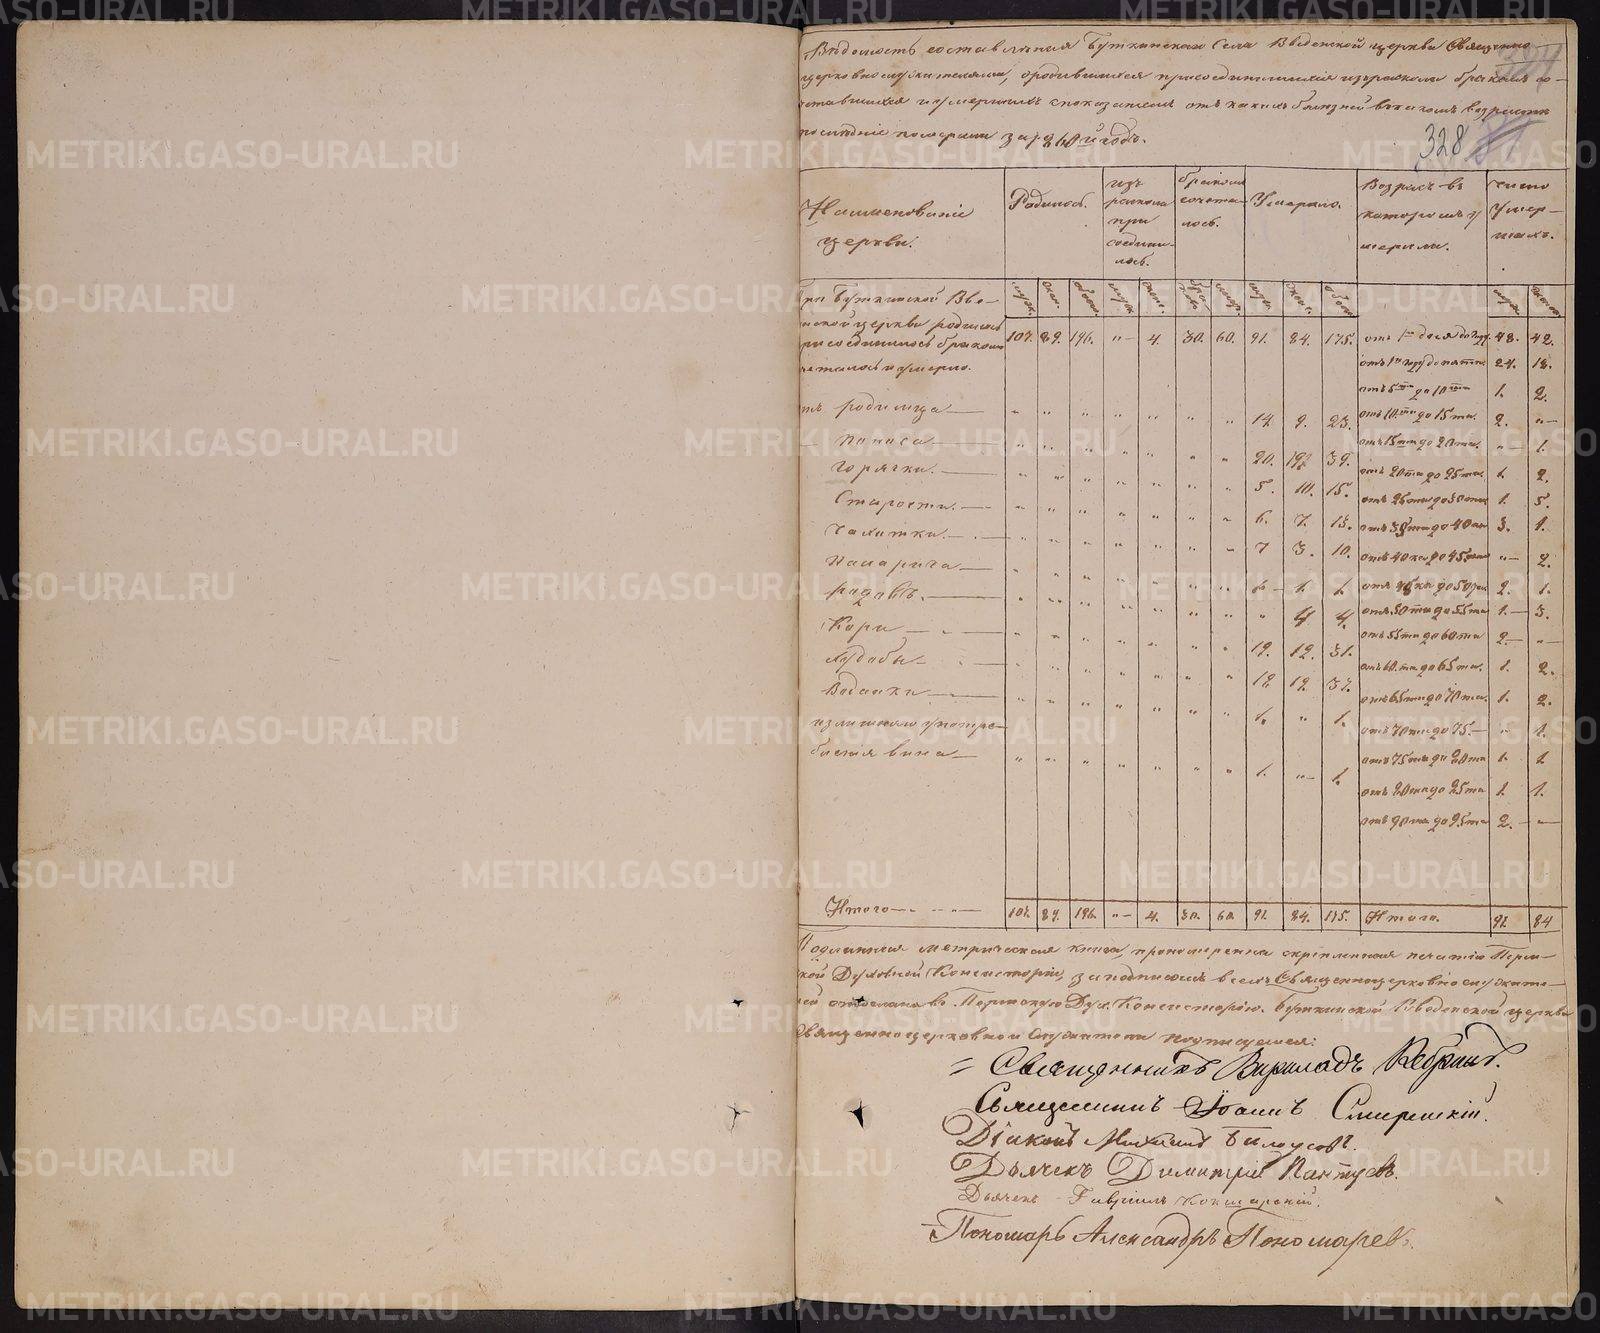 Вѣдомость составленная Буткинскаго Села Введенской церкви Священно-
церковнослужителями, о родившихся присоединившихся изъ раскола бракомъ со-
четавшихся и умершихъ съ показаніемъ отъ какихъ болѣзней въ какомъ возрасте
последніе померли за 1860й годъ.
328
Наименованіе церкви.
Родилось.
изъ раскола присоединилось.
бракомъ сочеталось.
Умерло.
Возрастъ въ которомъ умерли.
число умершихъ.
муж. жен. обоего. муж. жен. муж. жен. обоего муж. жен.
При Буткинской Вве-
нской церкви родилось
присоединилось бракомъ
сочеталось и умерло.
107. 89. 196. "- 4. 30. 60. 91. 84. 175.
отъ 1го дня до году 48. 42.
отъ 1го году до пяти 24. 18.
отъ 5ти до 10ти 1. 2.
отъ родимца 14. 9. 23.
отъ 10ти до 15ти. 2. "-
Поноса
отъ 15ти до 20ти. "- 1.
Горячки. 20. 19 39.
отъ 20ти до 25ти 1. 2.
Старости. 5. 10. 15.
отъ 25ти до 30ти 1. 5.
Чахотки. 6. 7. 13.
отъ 30ти до 40ка 3. 1.
7 3. 10.
отъ 40ка до 45ти "- 2.
родовъ. 1.
отъ 45ти до 50ти 2. 1.
Кори " 4 4.
отъ 50ти до 55ти 1. 3.
отъ 55ти до 60ти 2. "-
Худобы 31.
отъ 60ти до 65ти. 1. 2.
Водянки 37.
отъ 65ти до 70ти. 1. 2.
излишняго употре-
бленія вина
1. " 1.
отъ 70ти до 75. " 1.
отъ 75ти до 80ти 1. 1.
1. "- 1.
отъ 80ти до 85ти 1. 1.
отъ 90ти до 95ти 2. "-
Итого 107. 89. 196. "- 4. 30. 60. 91. 84. 175. Итого. 91. 84
Подлинная метрическая книга, прономеренна скрепленная печатію Перм-
кой Духовной Консисторіи, за подписомъ всехъ Священноцерковнослужите-
лей отослана въ Пермскую Дух. Консисторію. Буткинской Введенской церкви
Священноцерковно служители подписуемся:
Священникъ
Священникъ Іоаннъ Смиренскій.
Діаконъ Михаилъ Билоусовъ.
Дьячекъ Димитрій Пантуевъ.
Дьячекъ Гавріилъ Кокшарскій.
Пономарь Александръ Пономаревъ.
METRIKI.GASO-URAL.RU